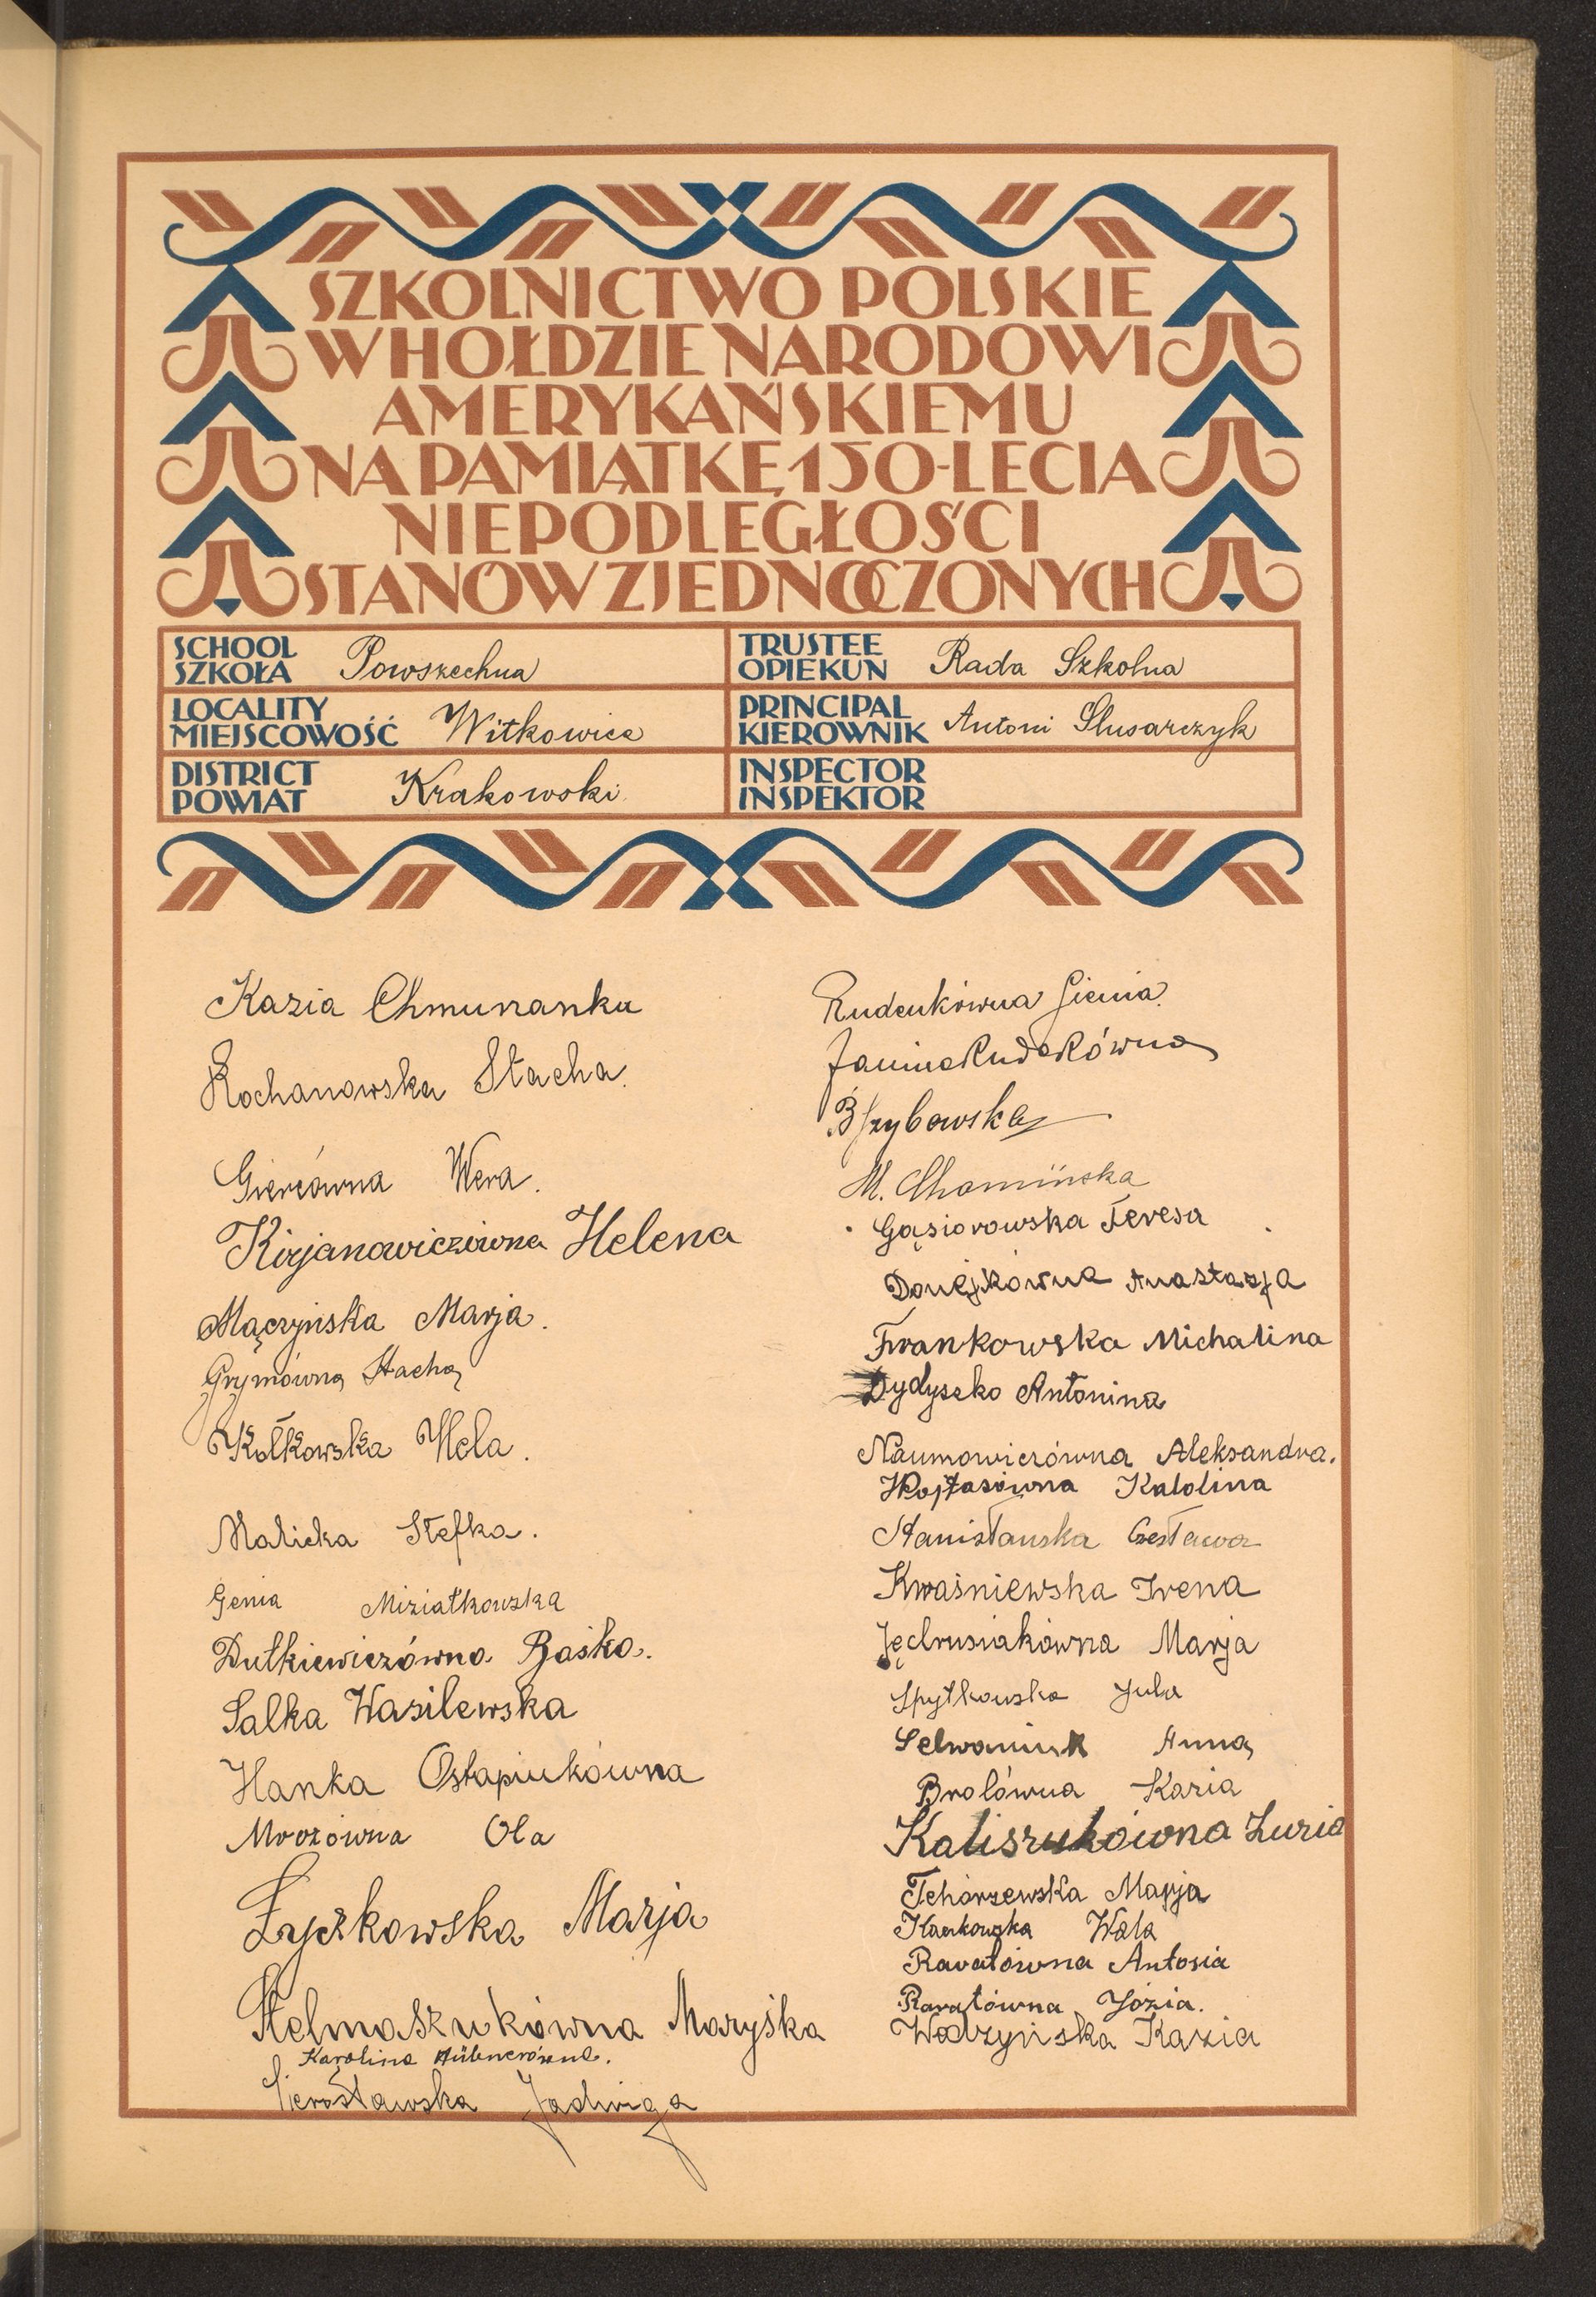 SZKOLNICTWO POLSKIE
W HOŁDZIE NARODOWI
AMERYKAŃSKIEMU
NA PAMIĄTKĘ 150-LECIA
NIEPODLEGŁOŚCI
STANÓW ZJEDNOCZONYCH
SCHOOL
SZKOŁA Powszechna
TRUSTEE
OPIEKUN Rada Szkolna
LOCALITY
MIEJSCOWOŚĆ Witkowice
PRINCIPAL
KIEROWNIK Antoni Slusarczyk
DISTRICT
POWIAT Krakowski
INSPECTOR
INSPEKTOR
Kazia Chmuranka
Kochanowska Stacha.
Giercówna Wera.
Kirjanowiczówna Helena
Mączyńska Marja.
Grymówna Stacha
Kołkowska Hela.
Malicka Stefka.
Genia Miziatkowska
Dutkiewiczówna Baśka.
Salka Wasilewska
Hanka Ostapiukówna
Mrozówna Ola
Łyczkowska Marja
Stelmaszukówna Maryśka
Karolina Hübnerówna.
Sierosławska Jadwiga
Rudeukówna Gienia.
Janina Rudakówna
B Szybowska
M. Chomińska
Gąsiorowska Teresa
Donejkówna Anastazja
Frankowska Michalina
Dydyszko Antonina
Naumowiczówna Aleksandra.
Wojtasówna Karolina
Stanisławska Czesława
Kwaśniewska Irena
Jędrusiakówna Marja
Spytkowska Jula
Selwaniuk Anna
Brolówna Kazia
Kaliszukówna Luzia
Tchórzewska Marja
Kaczkowska Wala
Rawatówna Antosia
Rawatówna Józia.
Wodzyńska Kazia